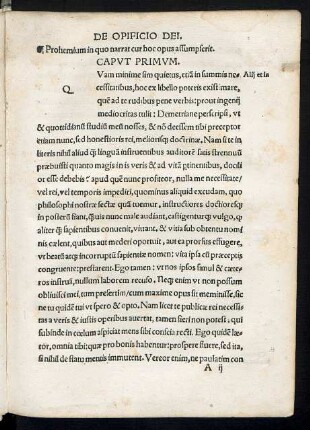 DE OPIFICIO DEI.
¶ Prohemium in quo narrat cur hoc opus assumpserit.
CAPVT PRIMVM.
Q
Vam minime sim quietus, etiã in summis ne⸗
Alij et in
cessitatibus, hoc ex libello poteris existimare,
quẽ ad te rudibus pene verbis: prout ingenij
mediocritas tulit: Demetriane perscripsi, vt
& quotidianũ studiũ meũ nosses, & nõ deessem tibi preceptor
etiam nunc, sed honestioris rei, meliorisq; doctrinæ. Nam si te in
literis nihil aliud q̃ linguã instruentibus auditorẽ satis strennuũ
præbuisti: quanto magis in is veris & ad vitã ptinentibus, docili
or esse debebis? apud quẽ nunc profiteor, nulla me necessitate/
vel rei, vel temporis impediri, quominus aliquid excudam, quo
philosophi nostræ sectæ quã tuemur, instructiores doctioresq;
in posterũ fiant, quis nunc male audiant, castigenturq; vulgo, q
aliter q̃ sapientibus conuenit, viuant, & vitia sub obtentu nomi
nis celent, quibus aut mederi oportuit, aut ea prorsus effugere,
vt beatũ atq; incorruptũ sapientiæ nomen: vita ipsa cũ præceptis
congruente: præstarent. Ego tamen: vt nos ipsos simul & cæte⸗
ros instruã, nullum laborem recuso. Neq; enim vt non possum
obliuisci mei, tum presertim/cum maxime opus sit meminisse, sic
ne tu quidẽ tui vt spero & opto. Nam licet te publicæ rei necessi
tas a veris & iustis operibus auertat, tamen fieri non potest, qui
subinde in cœlum aspiciat mens sibi conscia recti. Ego quidẽ læ⸗
tor, omnia tibi: quæ pro bonis habentur: prospere fluere, sed ita,
si nihil de statu mentis immutent. Vereor enim, ne paulatim con
A ij